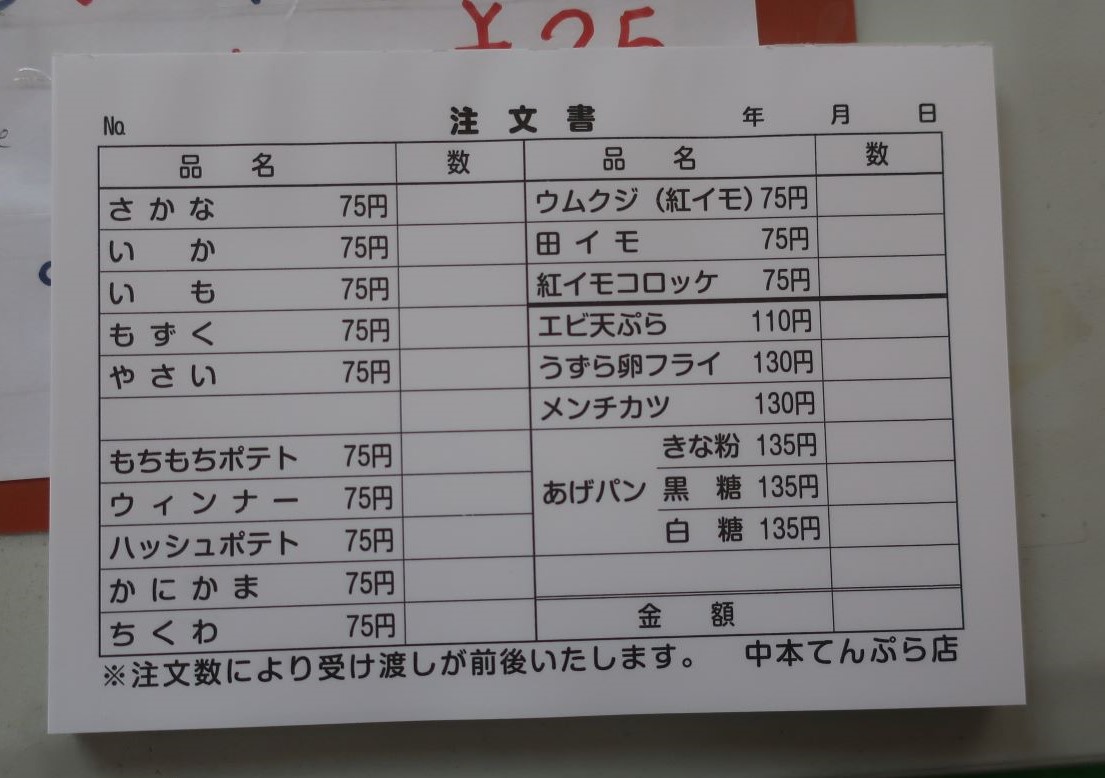 ¥25
No. 注文書 年 月 日
品名 数 品名 数
さかな 75円
いか 75円
いも 75円
もずく 75円
やさい 75円
もちもちポテト 75円
ウィンナー 75円
ハッシュポテト 75円
かにかま 75円
ちくわ 75円
ウムクジ(紅イモ) 75円
田イモ 75円
紅イモコロッケ 75円
エビ天ぷら 110円
うずら卵フライ 130円
メンチカツ 130円
あげパン
きな粉 135円
黒糖 135円
白糖 135円
金額
※注文数により受け渡しが前後いたします。 中本てんぷら店